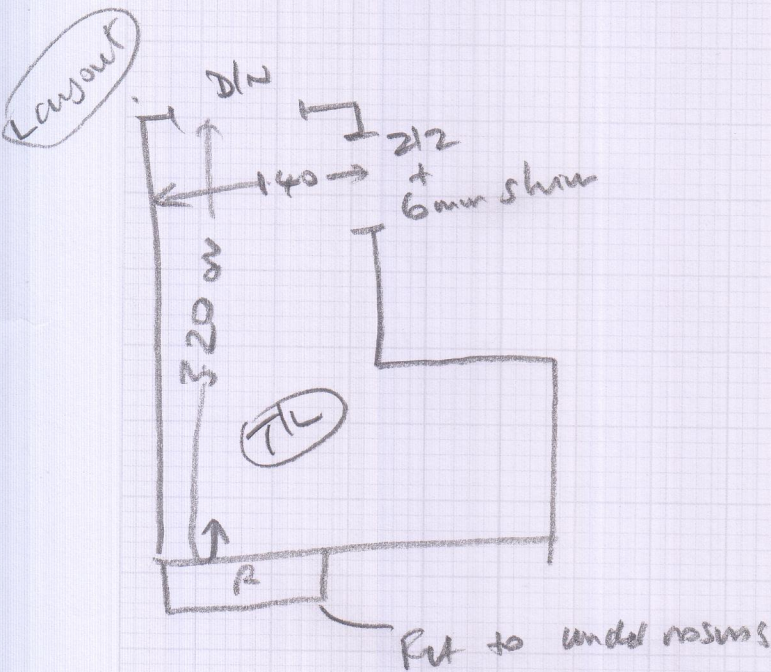 Layout
D/N
212
+
6mm shim
140
320 w
T/L
R
to under nosing